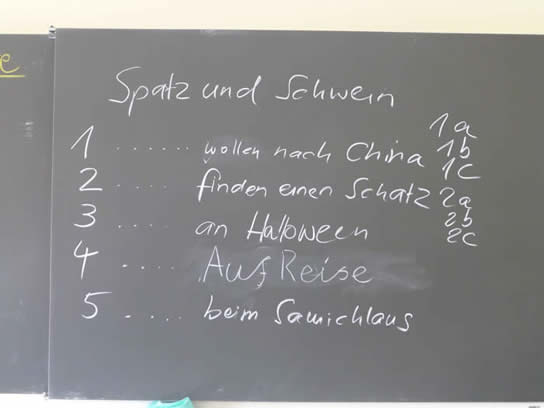 e
Spatz und Schwein
1 ...... wollen nach China
2 .... finden einen Schatz
3 .... an Halloween
4 .... Auf Reise
5 .... beim Samichlaus
1a
1b
1c
2a
2b
2c